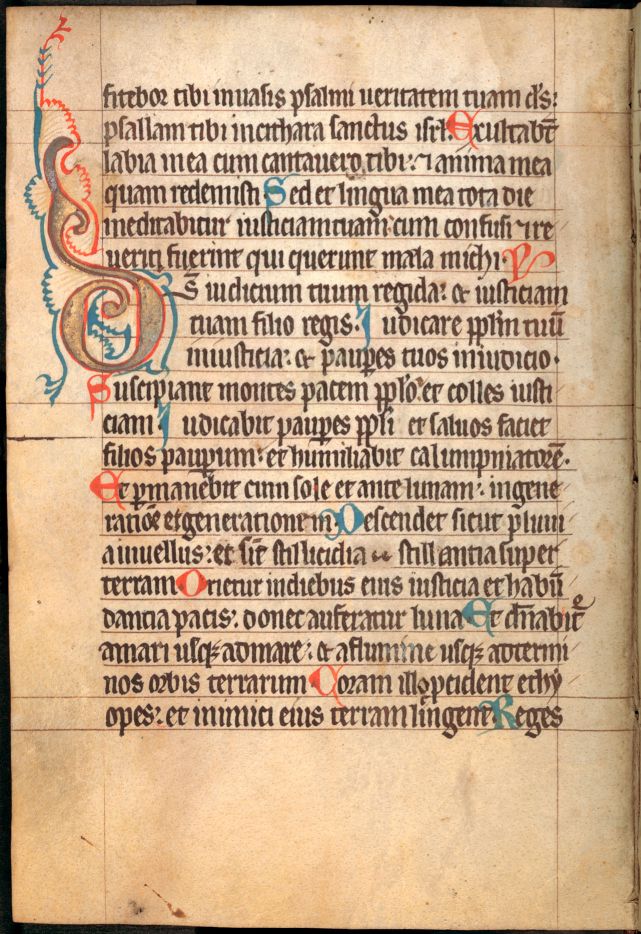 fitebor tibi in uasis psalmi ueritatem tuam ds̄:
psallam tibi in cithara sanctus isrl. Exultabūt
labia mea cum cantauero tibi: ⁊ anima mea
quam redemisti. Sed et lingua mea tota die
meditabitur iusticiam tuam: cum confusi ⁊ re
ueriti fuerint qui querunt mala michi. P
Ds̄ iudicium tuum regi da: et iusticiam
tuam filio regis. Iudicare pplm̄ tuū
in iusticia: et paup̄es tuos in iudicio.
Suscipiant montes pacem pplo: et colles iusti
ciam. Iudicabit paup̄es ppli et saluos faciet
filios paup̄um: et humiliabit calumpniatorē.
Et p̄manebit cum sole et ante lunam: in gene
ratiōe et generationem. Descendet sicut pluui
a in uellus: et sic̄ stillicidia stillantia super
terram. Orietur in diebus eius iusticia et habū
dantia pacis: donec auferatur luna. Et dn̄abit᷑
a mari usq̨ ad mare: et a flumine usq̨ ad termi
nos orbis terrarum. Coram illo p̄cident ethy
opes: et inimici eius terram lingent. Reges